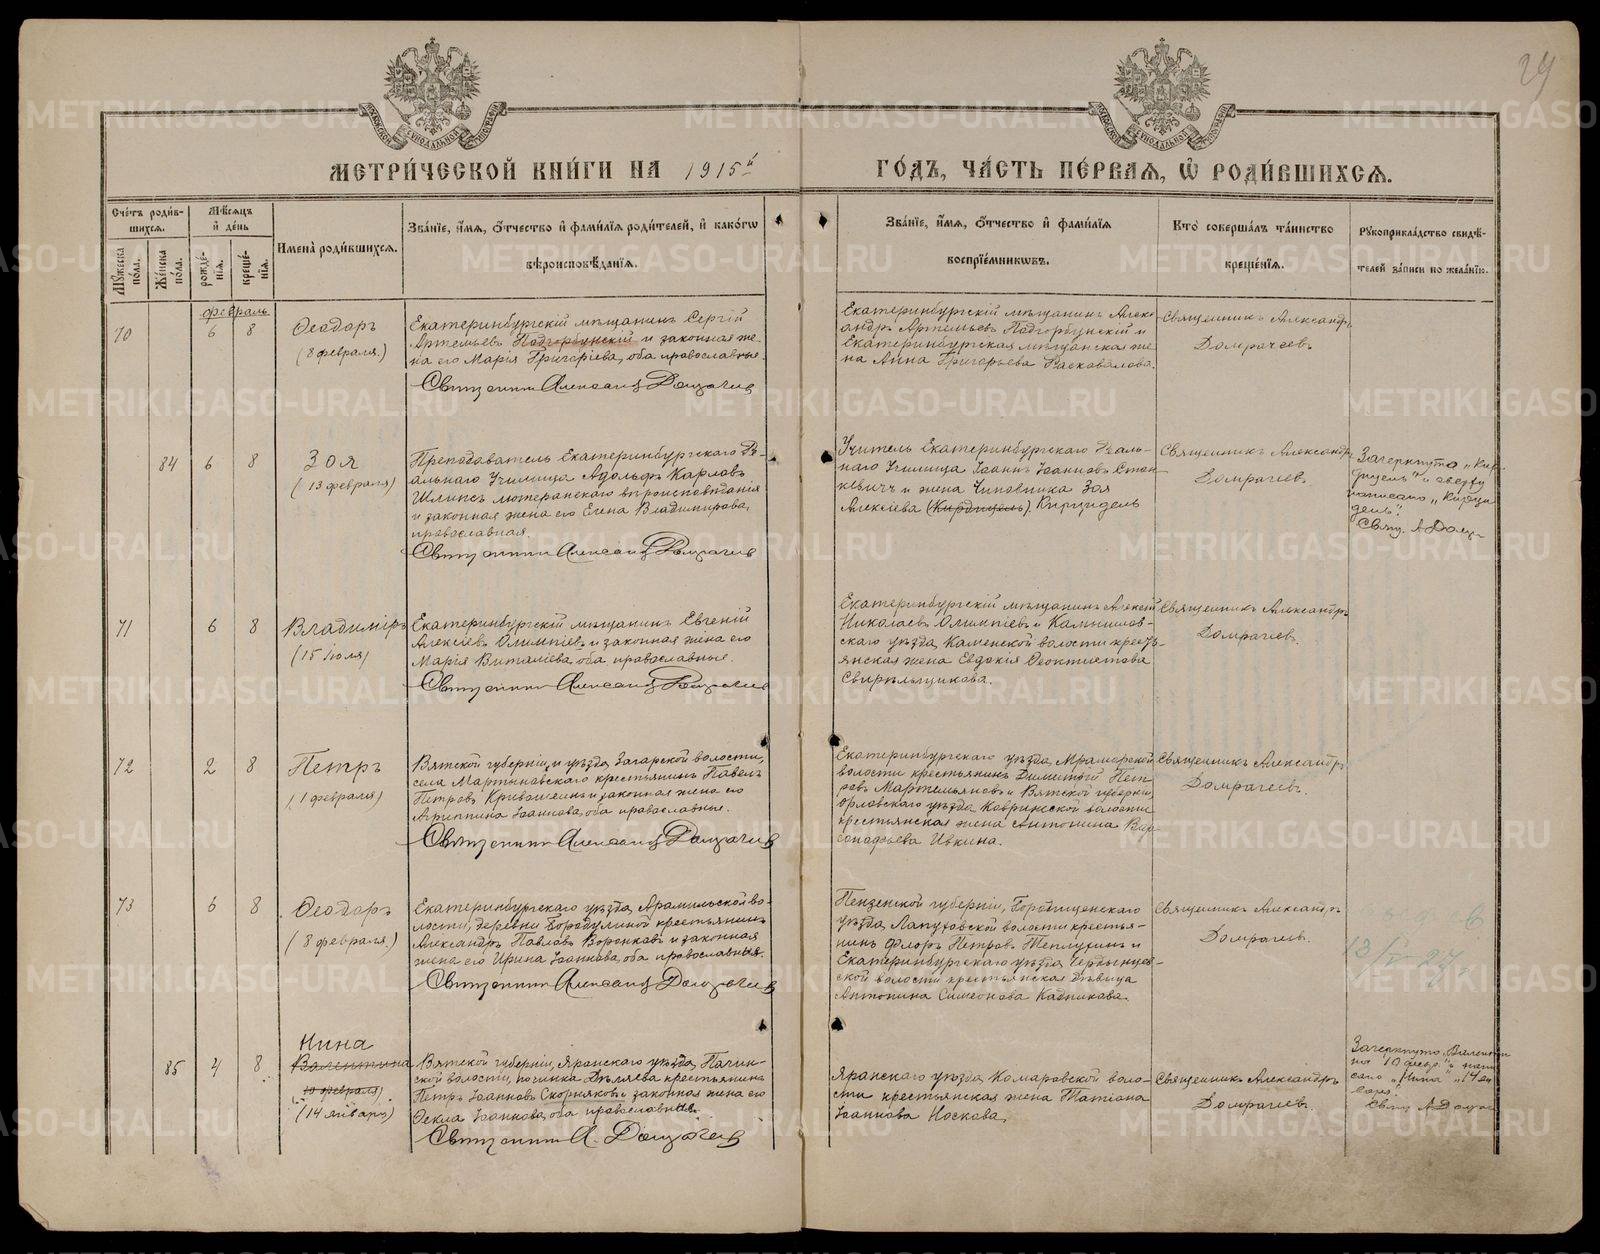 29
МЕТРИ́ЧЕСКОЙ КНИ́ГИ НА 1915й ГО́ДЪ, ЧА́СТЬ ПЕ́РВАЯ, Ѡ РОДИ́ВШИХСѦ.
Счетъ роди́вшихся.
Мѣ́сяцъ и день
Мужеска по́ла.
Же́нска по́ла.
рожде́нія.
креще́нія.
Имена̀ роди́вшихся.
Зва́ніе, и́мя, о́тчество и фами́лія роди́телей, и како́гѡ
вѣроисповѣ́данія.
Зва́ніе, и́мя, о́тчество и фами́лія
воспріе́мниковъ.
Кто̀ соверша́лъ та́инство
креще́нія.
Рукоприкла́дство свидѣ́-
телей за́писи по жела́нію.
февраль
70
6
8
Ѳеодоръ
(8 февраля.)
Екатеринбургскій мѣщанинъ Сергій
Артемьевъ Подгорбунскій и законная же-
на его Марія Григоріева, оба православные.
Священникъ Александръ Домрачевъ
Екатеринбургскій мѣщанинъ Алекс-
андръ Артемьевъ Подгорбунскій и
Екатеринбургская мѣщанская же-
на Анна Григорьева Расковалова.
Священникъ Александръ
Домрачевъ
84
6
8
Зоя
(13 февраля)
Преподаватель Екатеринбургскаго Ре-
альнаго Училища Адольфъ Карловъ
Шлипсъ лютеранскаго вѣроисповѣданія
и законная жена его Елена Владимирова,
православная.
Священникъ Александръ Домрачевъ
Учитель Екатеринбургскаго Реаль-
наго Училища Іоаннъ Іоанновъ Стан-
кевичъ и жена Чиновника Зоя
Алексіева (Кирдицель) Кирцидель
Священникъ Александръ
Домрачевъ.
Зачеркнуто „Кир-
дицель" и сверху
написано „Кирци
дель".
Свящ. А Домр-
71
6
8
Владиміръ
(15 Іюля)
Екатеринбургскій мѣщанинъ Евгеній
Алексіевъ Олимпіевъ и законная жена его
Марія Виталіева, оба православные.
Священникъ Александръ Домрачевъ
Екатеринбургскій мѣщанинъ Алексій
Николаевъ Олимпіевъ и Камышлов-
скаго уѣзда, Каменской волости кресть-
янская жена Евдокія Ѳеоктистова
Свирѣльщикова.
Священникъ Александръ
Домрачевъ.
72
2
8
Петръ
(1 февраля)
Вятской губерніи и уѣзда, Загарской волости,
села Мартыновскаго крестьянинъ Павелъ
Петровъ Кривошеинъ и законная жена его
Агриппина Іоаннова, оба православные.
Священникъ Александръ Домрачевъ
Екатеринбургскаго уѣзда, Мраморской
волости крестьянинъ Димитрій Пет-
ровъ Мартемьяновъ и Вятской губерніи,
Орловскаго уѣзда, Коврижской волости
крестьянская жена Антонина Вир-
сонофьева Ивкина.
Священникъ Александръ
Домрачевъ.
73
6
8
Ѳеодоръ
(8 февраля.)
Екатеринбургскаго уѣзда, Арамильской во-
лости, деревни Бородулиной крестьянинъ
Александръ Павловъ Воронковъ и законная
жена его Ирина Іоаннова, оба православные.
Священникъ Александръ Домрачевъ
Пензенской губерніи, Городищенскаго
уѣзда, Лапуховской волости крестья-
нинъ Флоръ Петровъ Теплухинъ и
Екатеринбургскаго уѣзда
ской волости крестьянская дѣвица
Антонина Симеонова Кадникова.
Священникъ Александръ
Домрачевъ.
85
4
8
Нина
Валентина
10 февраля)
(14 января)
Вятской губерніи, Яранскаго уѣзда, Пачин-
ской волости, починка Дѣляева крестьянинъ
Петръ Іоанновъ Скорняковъ и законная жена его
Ѳекла Іоаннова, оба православные.
Священникъ А. Домрачевъ
Яранскаго уѣзда, Комаровской воло-
сти крестьянская жена Татіана
Іоаннова Носкова.
Священникъ Александръ
Домрачевъ.
Зачеркнуто „Валенти
на 10 февр." напи
сано „Нина" „14 ян
варя".
Свящ А Домра